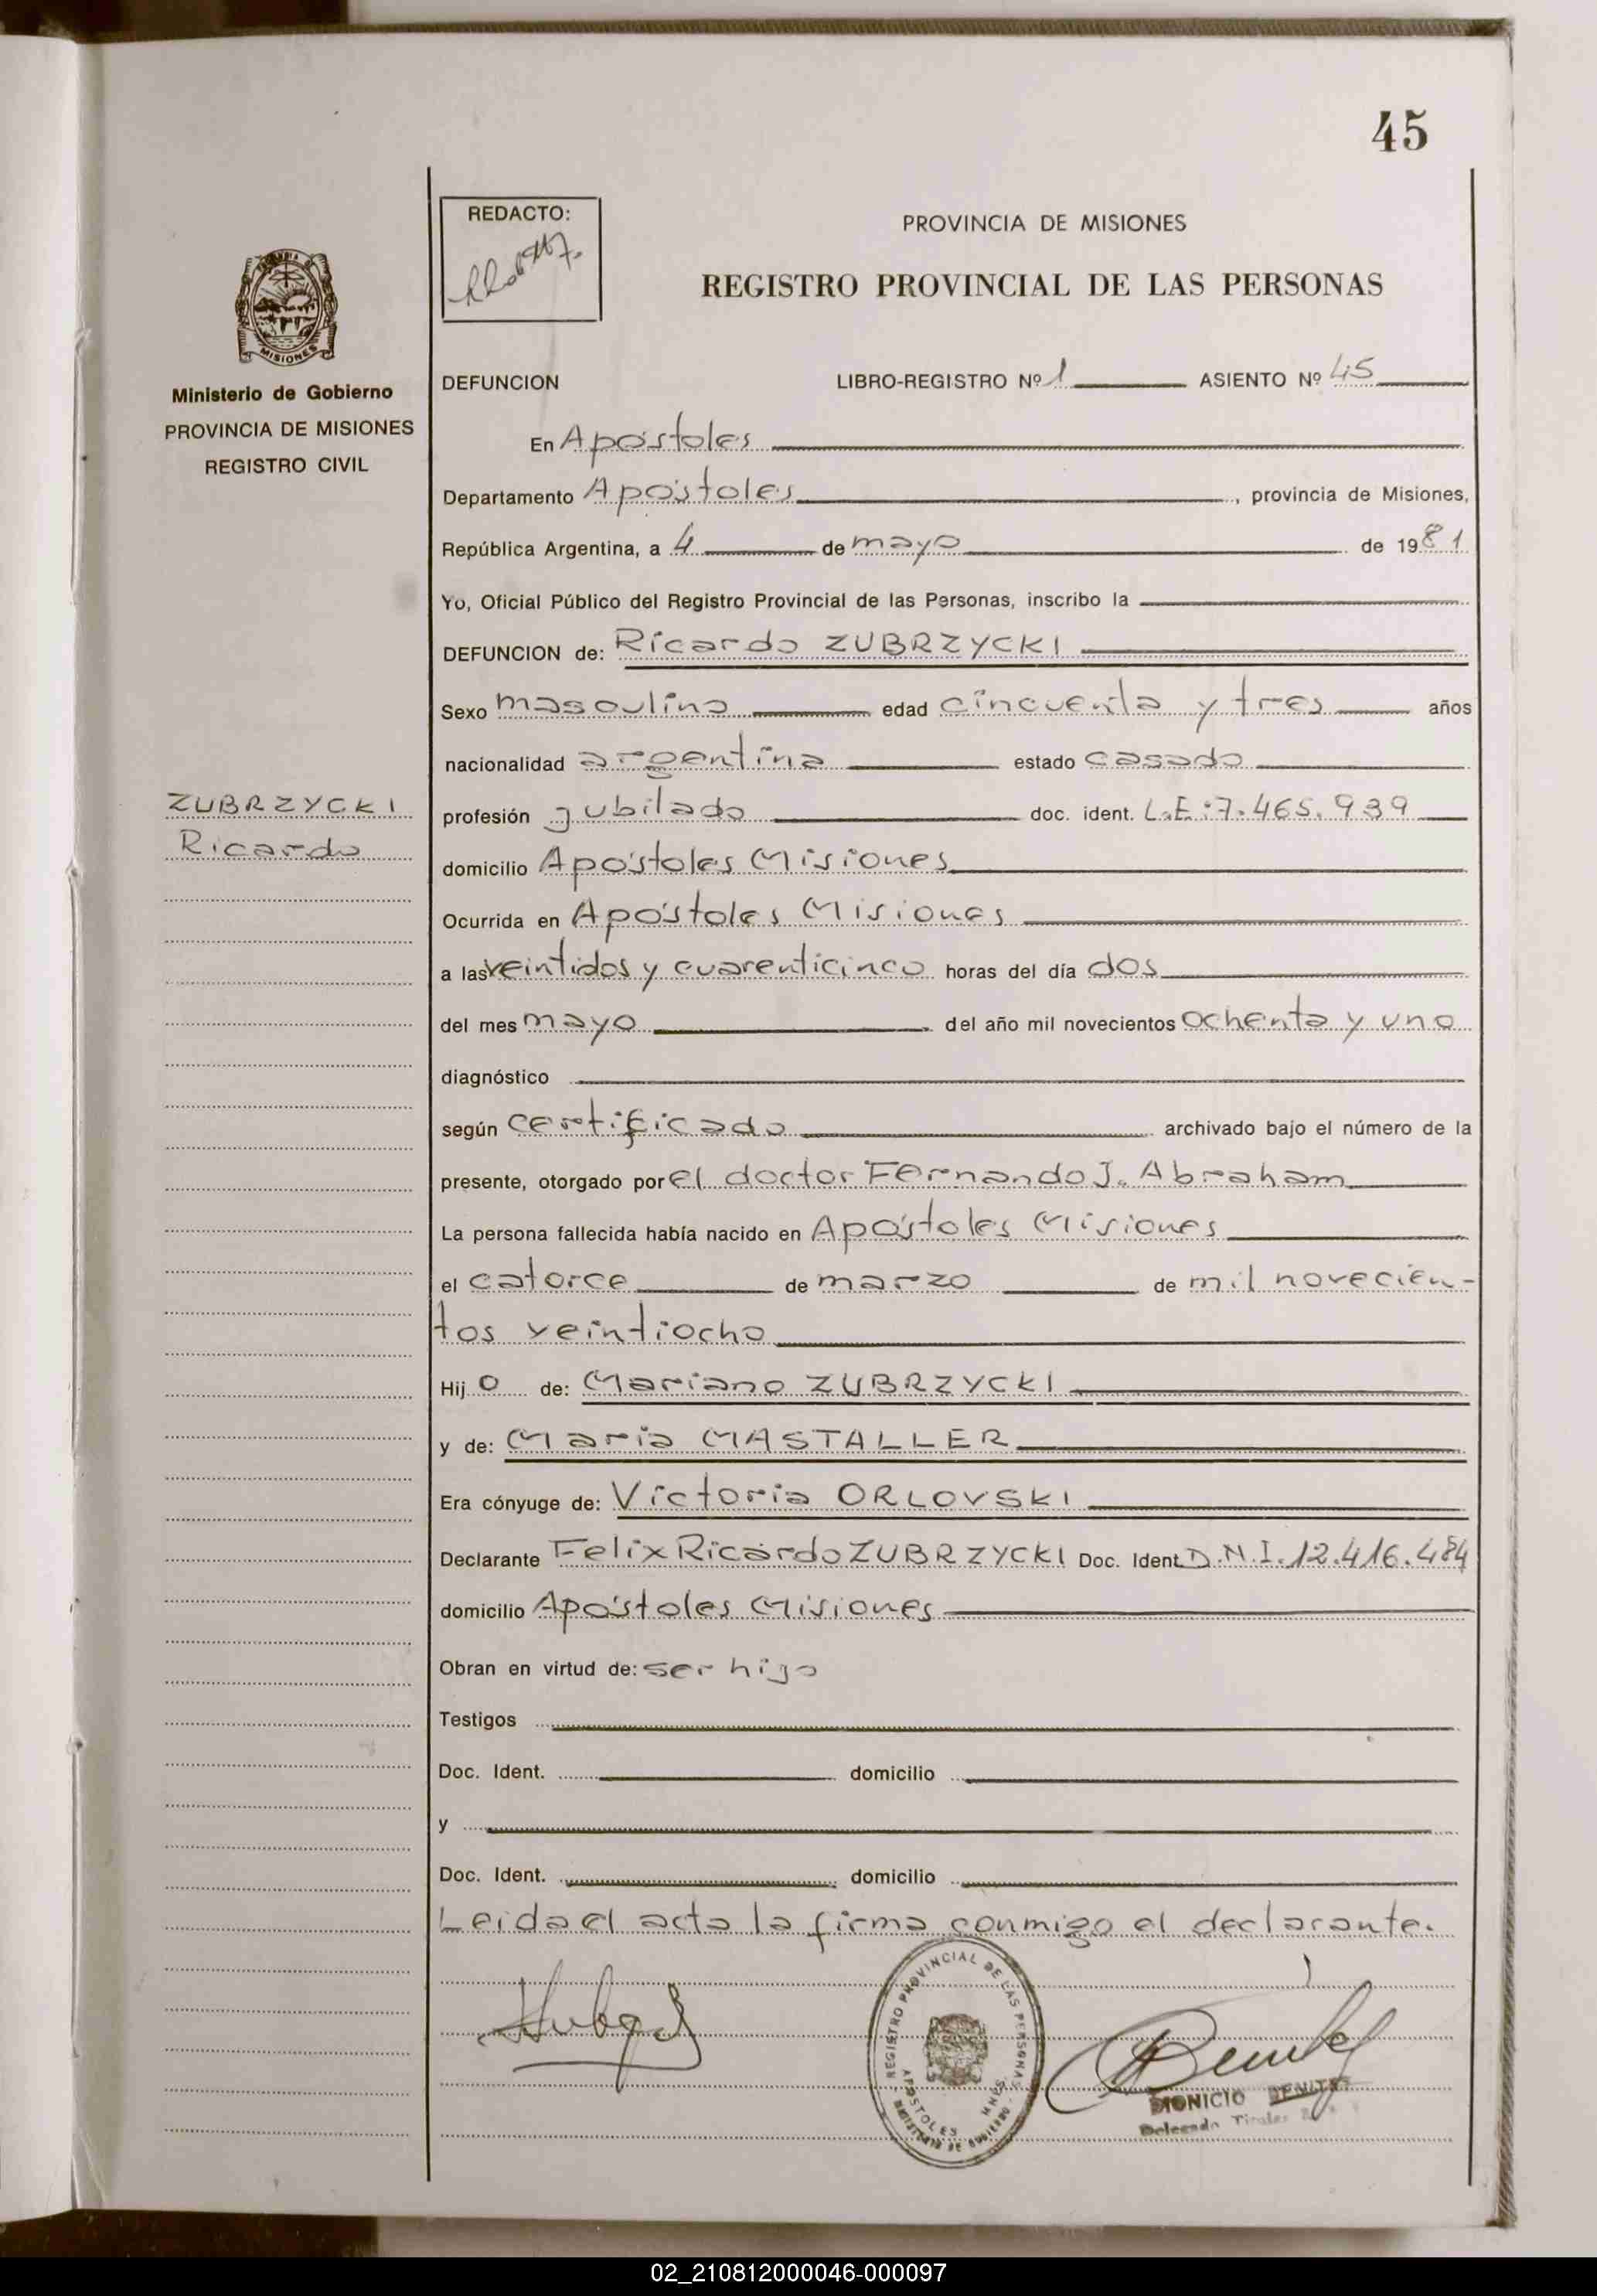 45
REDACTO:
PROVINCIA DE MISIONES
REGISTRO PROVINCIAL DE LAS PERSONAS
MISIONES
Ministerio de Gobierno
PROVINCIA DE MISIONES
REGISTRO CIVIL
ZUBRZYCKI
Ricardo
DEFUNCION LIBRO-REGISTRO Nº 1 ASIENTO Nº 45
En Apóstoles
Departamento Apóstoles, provincia de Misiones,
República Argentina, a 4 de mayo de 1981
Yo, Oficial Público del Registro Provincial de las Personas, inscribo la
DEFUNCION de: Ricardo ZUBRZYCKI
Sexo masculino edad cincuenta y tres años
nacionalidad argentina estado casado
profesión jubilado doc. ident. L.E:7.465.939
domicilio Apóstoles Misiones
Ocurrida en Apóstoles Misiones
a las veintidos y cuarenticinco horas del día dos
del mes mayo del año mil novecientos ochenta y uno
diagnóstico
según certificado archivado bajo el número de la
presente, otorgado por el doctor Fernando J. Abraham
La persona fallecida había nacido en Apóstoles Misiones
el catorce de marzo de mil novecien-
tos veintiocho
Hijo de: Mariano ZUBRZYCKI
y de: Maria MASTALLER
Era cónyuge de: Victoria ORLOVSKI
Declarante Felix Ricardo ZUBRZYCKI Doc. Ident. D.N.I.12.416.484
domicilio Apóstoles Misiones
Obran en virtud de: ser hijo
Testigos
Doc. Ident. domicilio
y
Doc. Ident. domicilio
Leida el acta la firma conmigo el declarante.
REGISTRO PROVINCIAL DE LAS PERSONAS
APOSTOLES MNES.
MINISTERIO DE GOBIERNO
DIONICIO BENITEZ
Delegado Titular
02_210812000046-000097